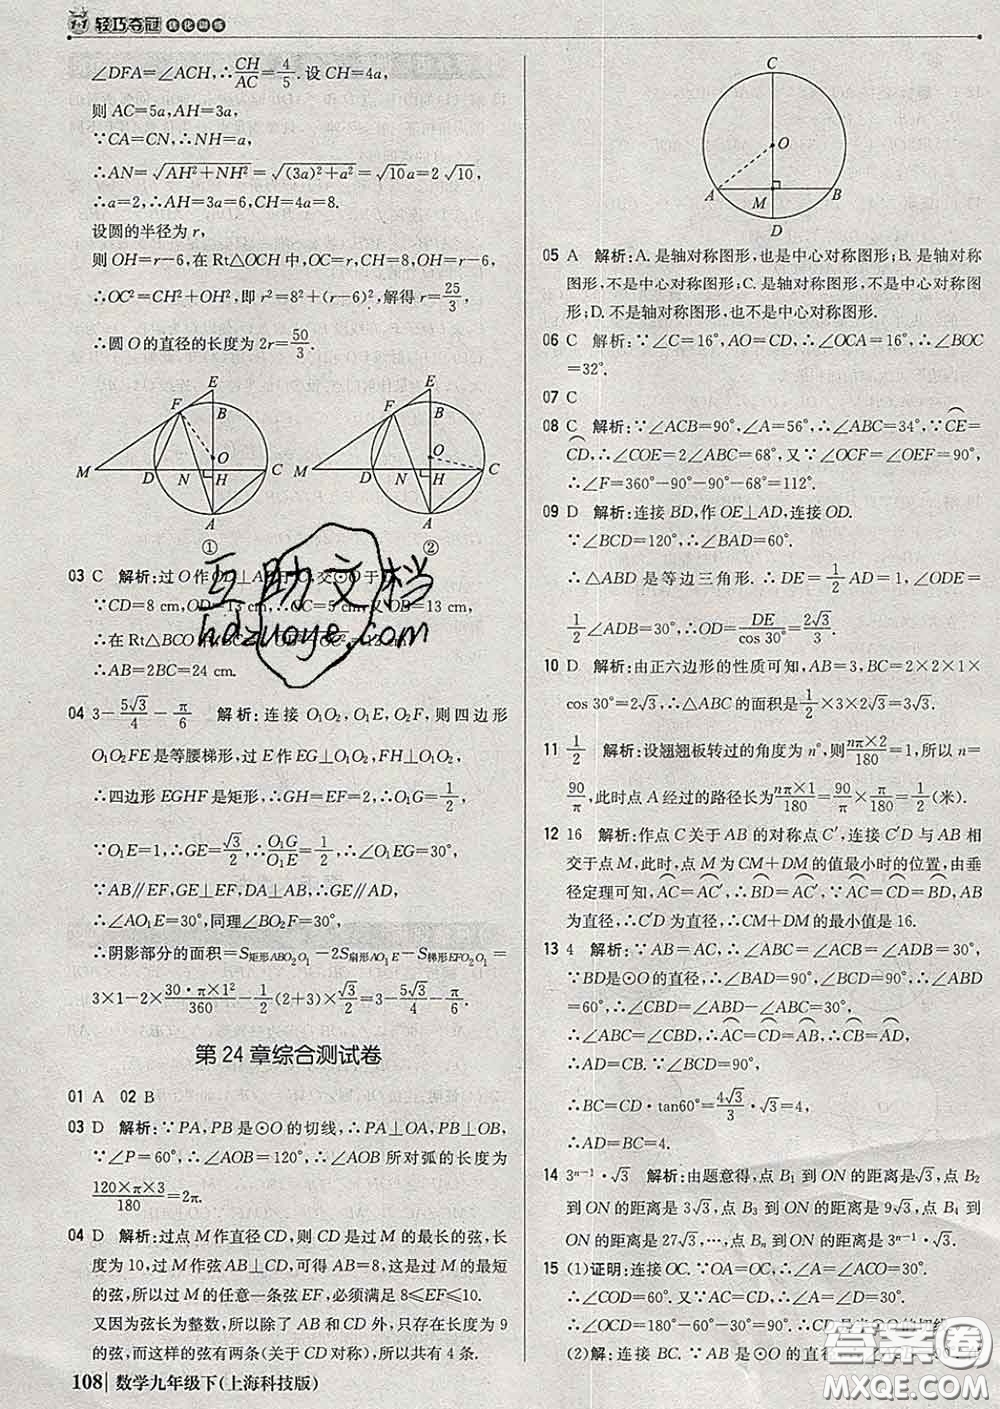 1+1 轻巧夺冠 优化训练
∠DFA=∠ACH,∴CH/AC=4/5.设CH=4a,
则AC=5a,AH=3a,
∵CA=CN,∴NH=a,
∴AN=√(AH²+NH²)=√((3a)²+a²)=√10a=2√10,
∴a=2,∴AH=3a=6,CH=4a=8.
设圆的半径为r,
则OH=r−6,在Rt△OCH中,OC=r,CH=8,OH=r−6,
∴OC²=CH²+OH²,即r²=8²+(r−6)²,解得r=25/3,
∴圆O的直径的长度为2r=50/3.
E
F
B
O
M
D
N
H
C
A
①
E
F
B
O
M
D
N
H
C
A
②
03 C 解析:过O作OD⊥AB于C,交⊙O于D,
∵CD=8 cm,OD=13 cm,∴OC=5 cm,又∵OB=13 cm,
∴在Rt△BCO中,BC=√ =12 cm,
∴AB=2BC=24 cm.
04 3−5√3/4−π/6 解析:连接O₁O₂,O₁E,O₂F,则四边形
O₁O₂FE是等腰梯形,过E作EG⊥O₁O₂,FH⊥O₁O₂,
∴四边形EGHF是矩形,∴GH=EF=2,∴O₁G=1/2,
∵O₁E=1,∴GE=√3/2,∴O₁G/O₁E=1/2,∴∠O₁EG=30°,
∵AB∥EF,GE⊥EF,DA⊥AB,∴GE∥AO₁,
∴∠AO₁E=30°,同理∠BO₂F=30°,
∴阴影部分的面积=S矩形ABO₂O₁−2S扇形AO₁E−S梯形EFO₂O₁=
3×1−2×30·π×1²/360−1/2(2+3)×√3/2=3−5√3/4−π/6.
第24章综合测试卷
01 A 02 B
03 D 解析:∵PA,PB是⊙O的切线,∴PA⊥OA,PB⊥OB,
∵∠P=60°,∴∠AOB=120°,∴∠AOB所对弧的长度为
120×π×3/180=2π.
04 D 解析:过点M作直径CD,则CD是过M的最长的弦,长
度为10,过M作弦AB⊥CD,可得AB=8,这是过M的最短
的弦,所以过M的任意一条弦EF,必须满足8≤EF≤10.
又因为弦长为整数,所以除了AB和CD外,只存在长度为9
的弦,而这样的弦有两条(关于CD对称),所以共有4条.
108 数学九年级下(上海科技版)
C
O
A
M
B
D
05 A 解析:A.是轴对称图形,也是中心对称图形;B.是轴对称
图形,不是中心对称图形;C.是轴对称图形,不是中心对称图
形;D.不是轴对称图形,也不是中心对称图形.
06 C 解析:∵∠C=16°,AO=CO,∴∠OCA=16°,∴∠BOC
=32°.
07 C
08 C 解析:∵∠ACB=90°,∠A=56°,∴∠ABC=34°,∵CE=
CD,∴∠COE=2∠ABC=68°,又∵∠OCF=∠OEF=90°,
∴∠F=360°−90°−90°−68°=112°.
09 D 解析:连接BD,作OE⊥AD,连接OD.
∵∠BCD=120°,∴∠BAD=60°.
∴△ABD是等边三角形.∴DE=1/2AD=1,∠ODE=
1/2∠ADB=30°,∴OD=DE/cos 30°=2√3/3.
10 D 解析:由正六边形的性质可知,AB=3,BC=2×2×
cos 30°=2√3,∴△ABC的面积是1/2×3×2√3=3√3.
11 1/2 解析:设翘翘板转过的角度为n°,则nπ×2/180=1,所以n=
90/π,此时点A经过的路径长为nπ×1/180=90/180=1/2(米).
12 16 解析:作点C关于AB的对称点C′,连接C′D与AB相
交于点M,此时,点M为CM+DM的值最小时的位置,由垂
径定理可知,AC=AC′,∴BD=AC′.∵AC=CD=BD,AB
为直径,∴C′D为直径,∴CM+DM的最小值是16.
13 4 解析:∵AB=AC,∴∠ABC=∠ACB=∠ADB=30°,
∵BD是⊙O的直径,∴∠BAD=90°,∠BCD=90°,∠ABD
=60°,∴∠CBD=∠ABD−∠ABC=30°,
∴∠ABC=∠CBD,∴AC=CD=AB,∴CB=AD,
∴AD=CB.∵∠BCD=90°,
∴BC=CD·tan60°=4√3/3·√3=4,
∴AD=BC=4.
14 3ⁿ⁻¹·√3 解析:由题意得,点B₁到ON的距离是√3,点B₂
到ON的距离是3√3,点B₃到ON的距离是9√3,点B₄到
ON的距离是27√3,…,点Bₙ到ON的距离是3ⁿ⁻¹·√3.
15 (1)证明:连接OC.∵OA=OC,∴∠A=∠ACO=30°.
∴∠COD=60°.又∵∠D=30°,
∴∠OCD=180°−60°−30°=90°,∴CD是⊙O的切线.
(2)解:∵⊙O的直径
互助文档
hdzuoye.com
答案圈
MXQE.COM